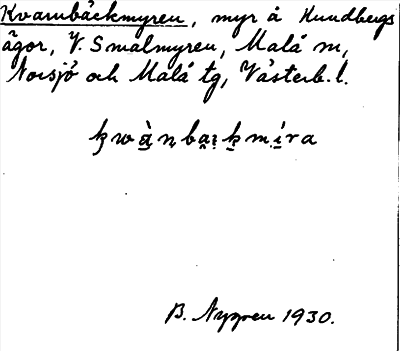 Kvarnbäckmyren, myr å Hundbergs
ägor, V. Smalmyren, Malå sn,
Norsjö och Malå tg, Västerb. l.
B. Nygren 1930.